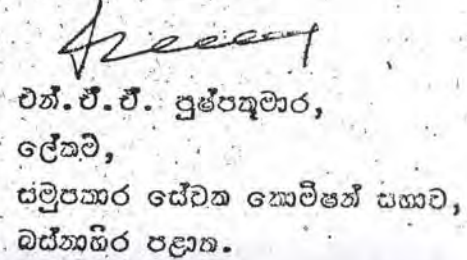 එන්.ඒ.ඒ. පුෂ්පකුමාර,
ලේකම්,
සමුපකාර සේවක කොමිෂන් සභාව,
බස්නාහිර පළාත.